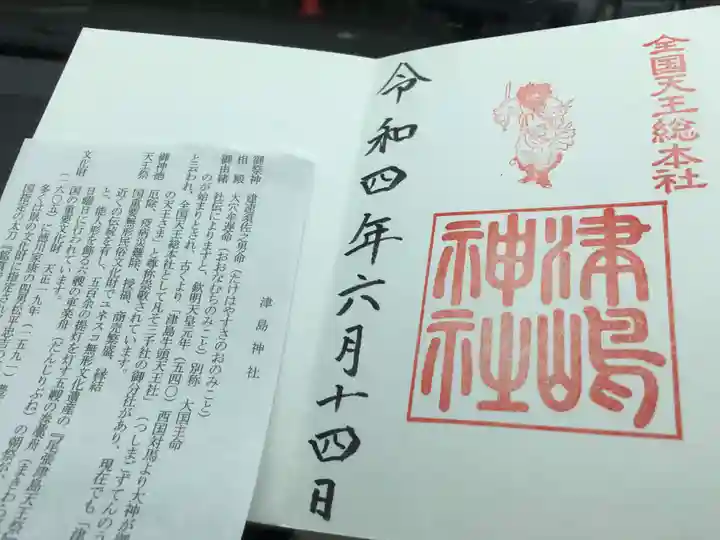 全国天王総本社
津嶋
神社
令和四年六月十四日
津島神社
御祭神 建速須佐之男命(たけはやすさのおのみこと)
相殿 大穴牟遅命(おおなむちのみこと) 別称 大国主命
御由緒 社伝によりますと、欽明天皇元年(五四〇) 西国対馬より大神が
のが始まりとされ、古くより「津島牛頭天王社」(つしまごずてんのう
と云われ、全国天王総本社として凡そ三千社の御分社があり、現在でも「津
の天王さま」と尊称崇敬されています。
御神徳 厄除、災難除、授福、商売繁盛、縁結
天王祭 国重要無形民俗文化財・ユネスコ無形文化遺産の『尾張津島天王祭』
近くの伝統を有し、五百余の提灯を灯す五艘の巻藁舟(まきわら
と、能人形を飾る六艘の車楽舟(だんじりぶね)の朝祭が、
日曜日に行われています。
文化財 国の重要文化財 天正一九年(一五九一)
(一六〇五)に徳川家康の四男松平忠吉の
多く国指定の文化財に指定され
国指定の太刀